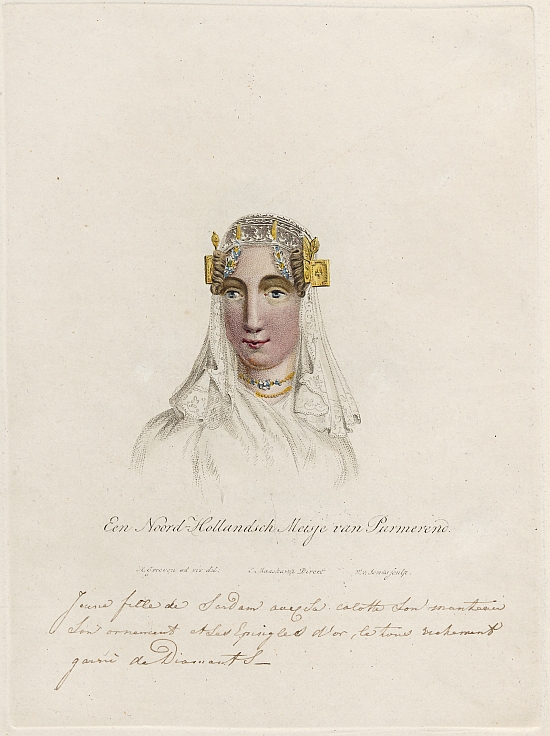 Een Noord-Hollandsch Meisje van Purmerend.
H. Greeven ad viv. del. E. Maaskamp Direx. sculpt.
Jeune fille de Sardam avec sa calotte son
son ornement et ses Epingles d'or, le tous richement
garni de Diamants